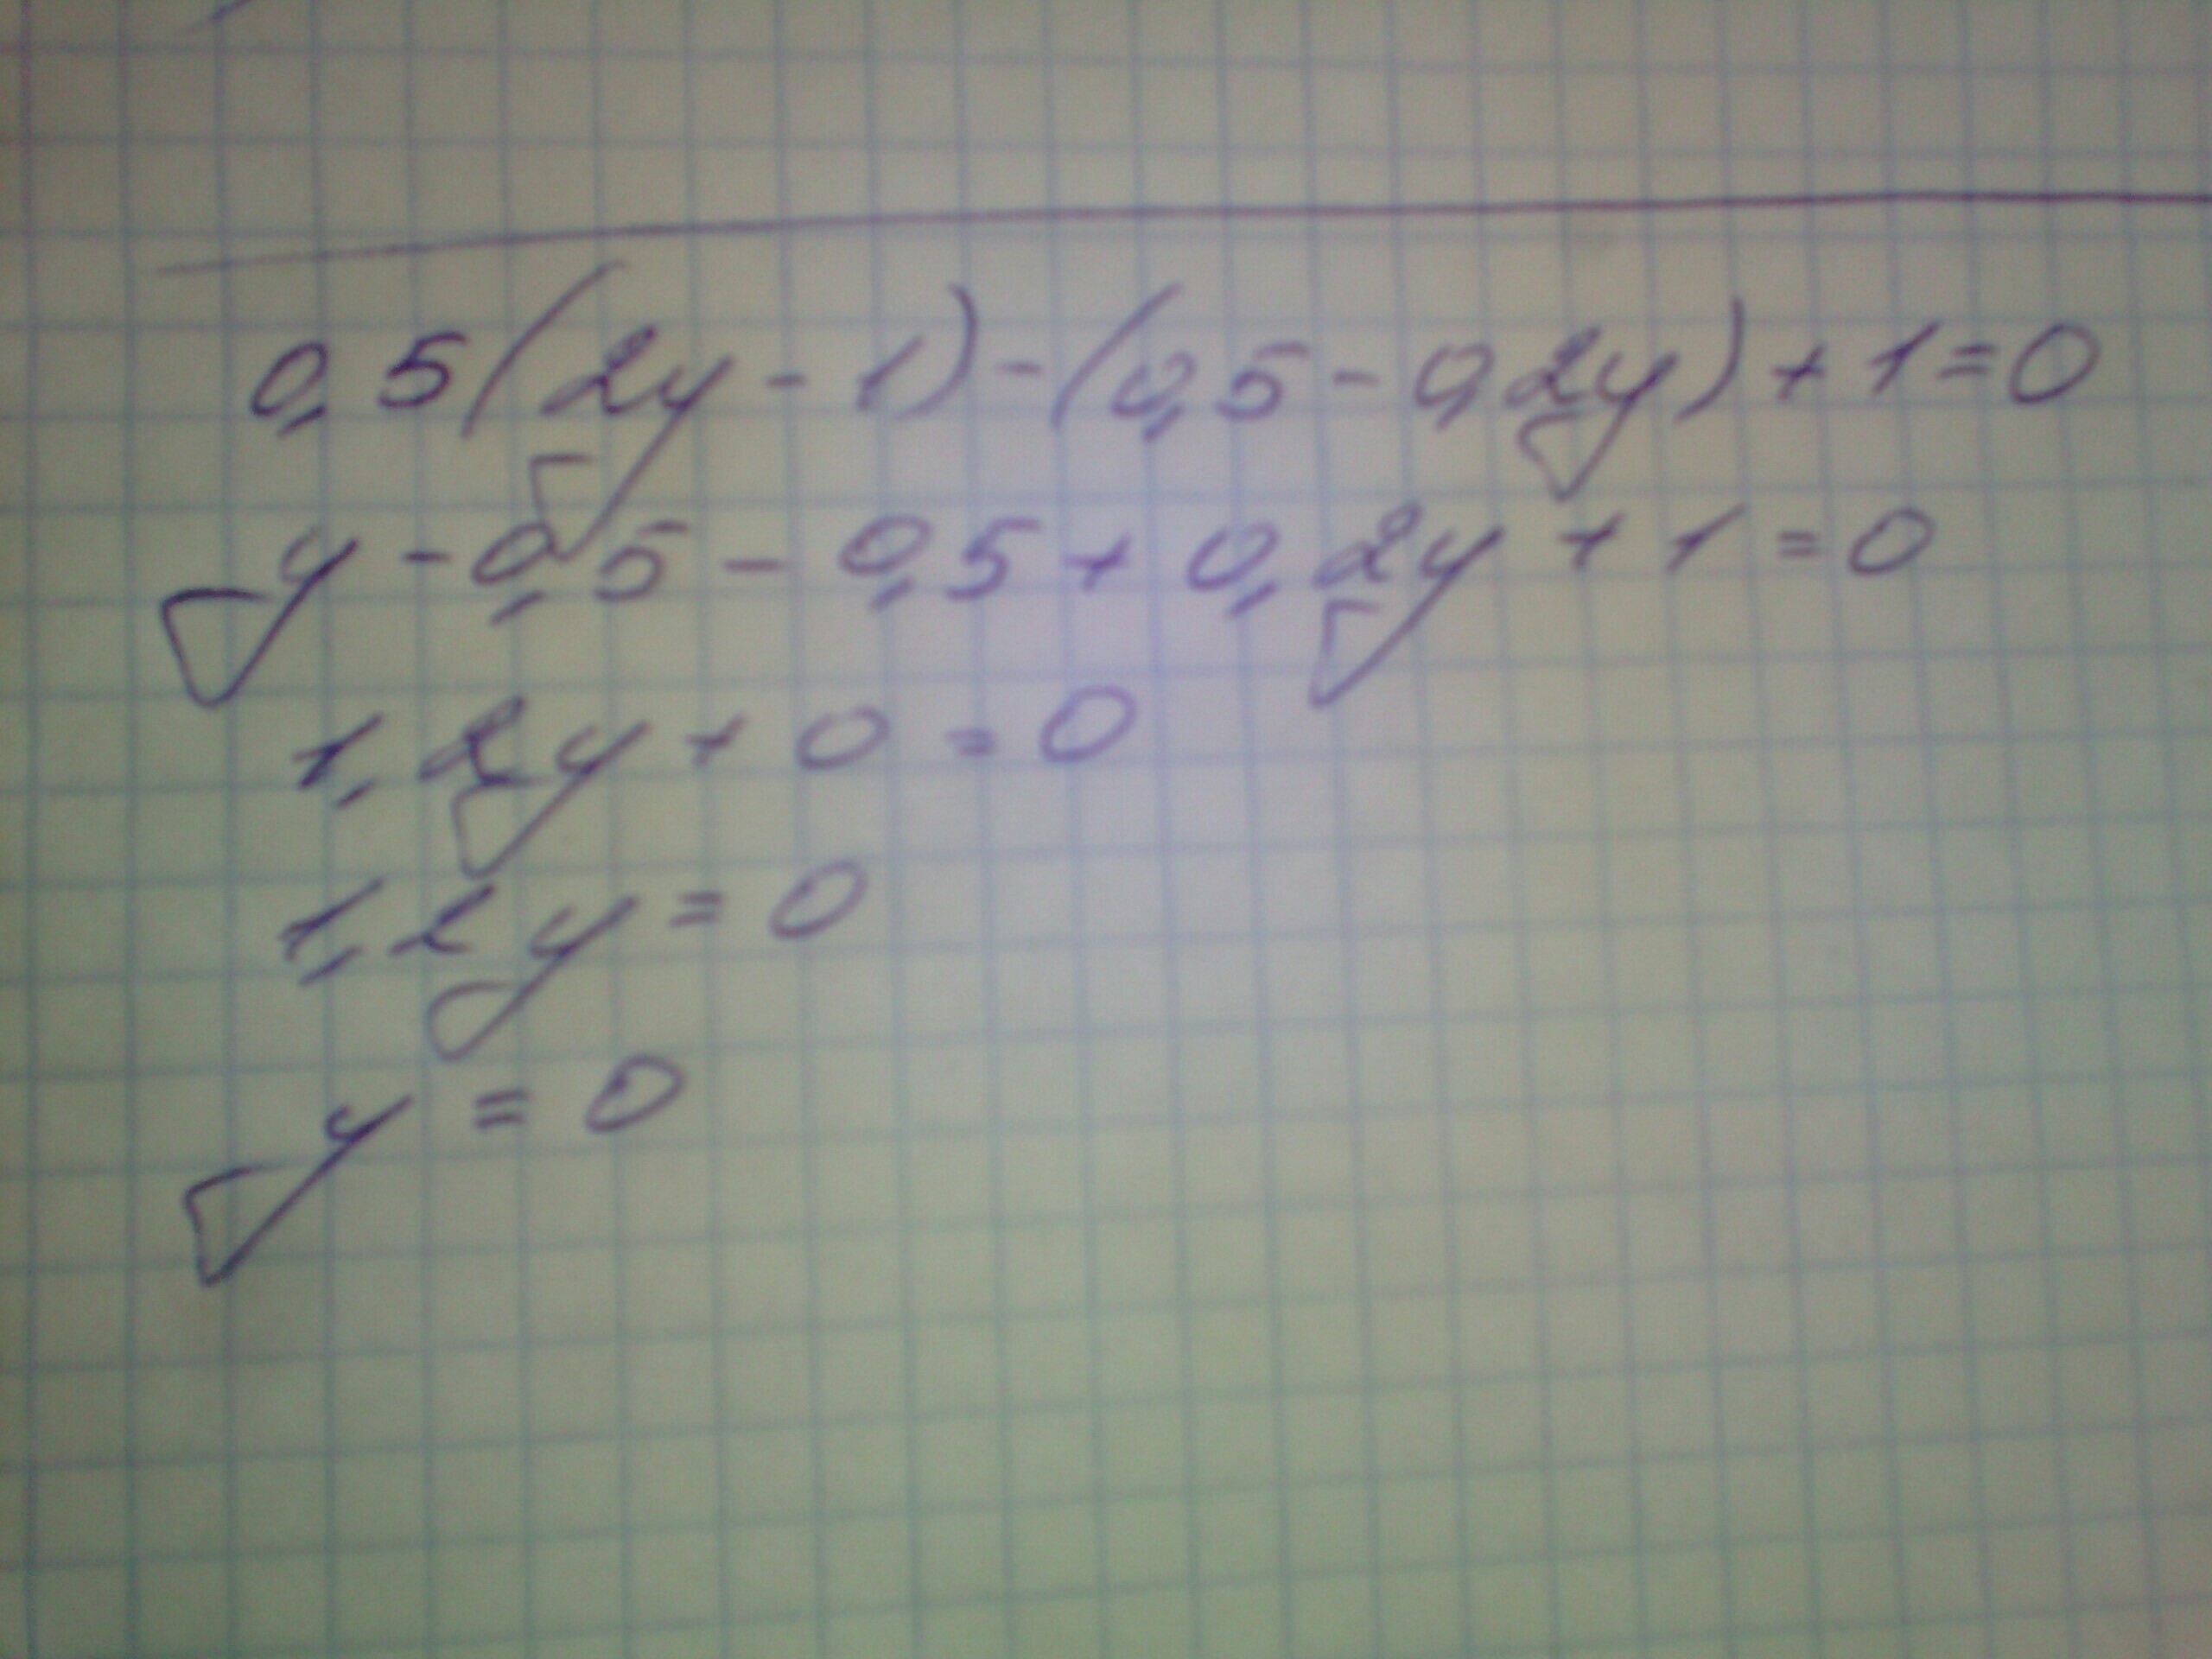 0,5(2y-1)-(0,5-0,2y)+1=0
y-0,5-0,5+0,2y+1=0
1,2y+0=0
1,2y=0
y=0